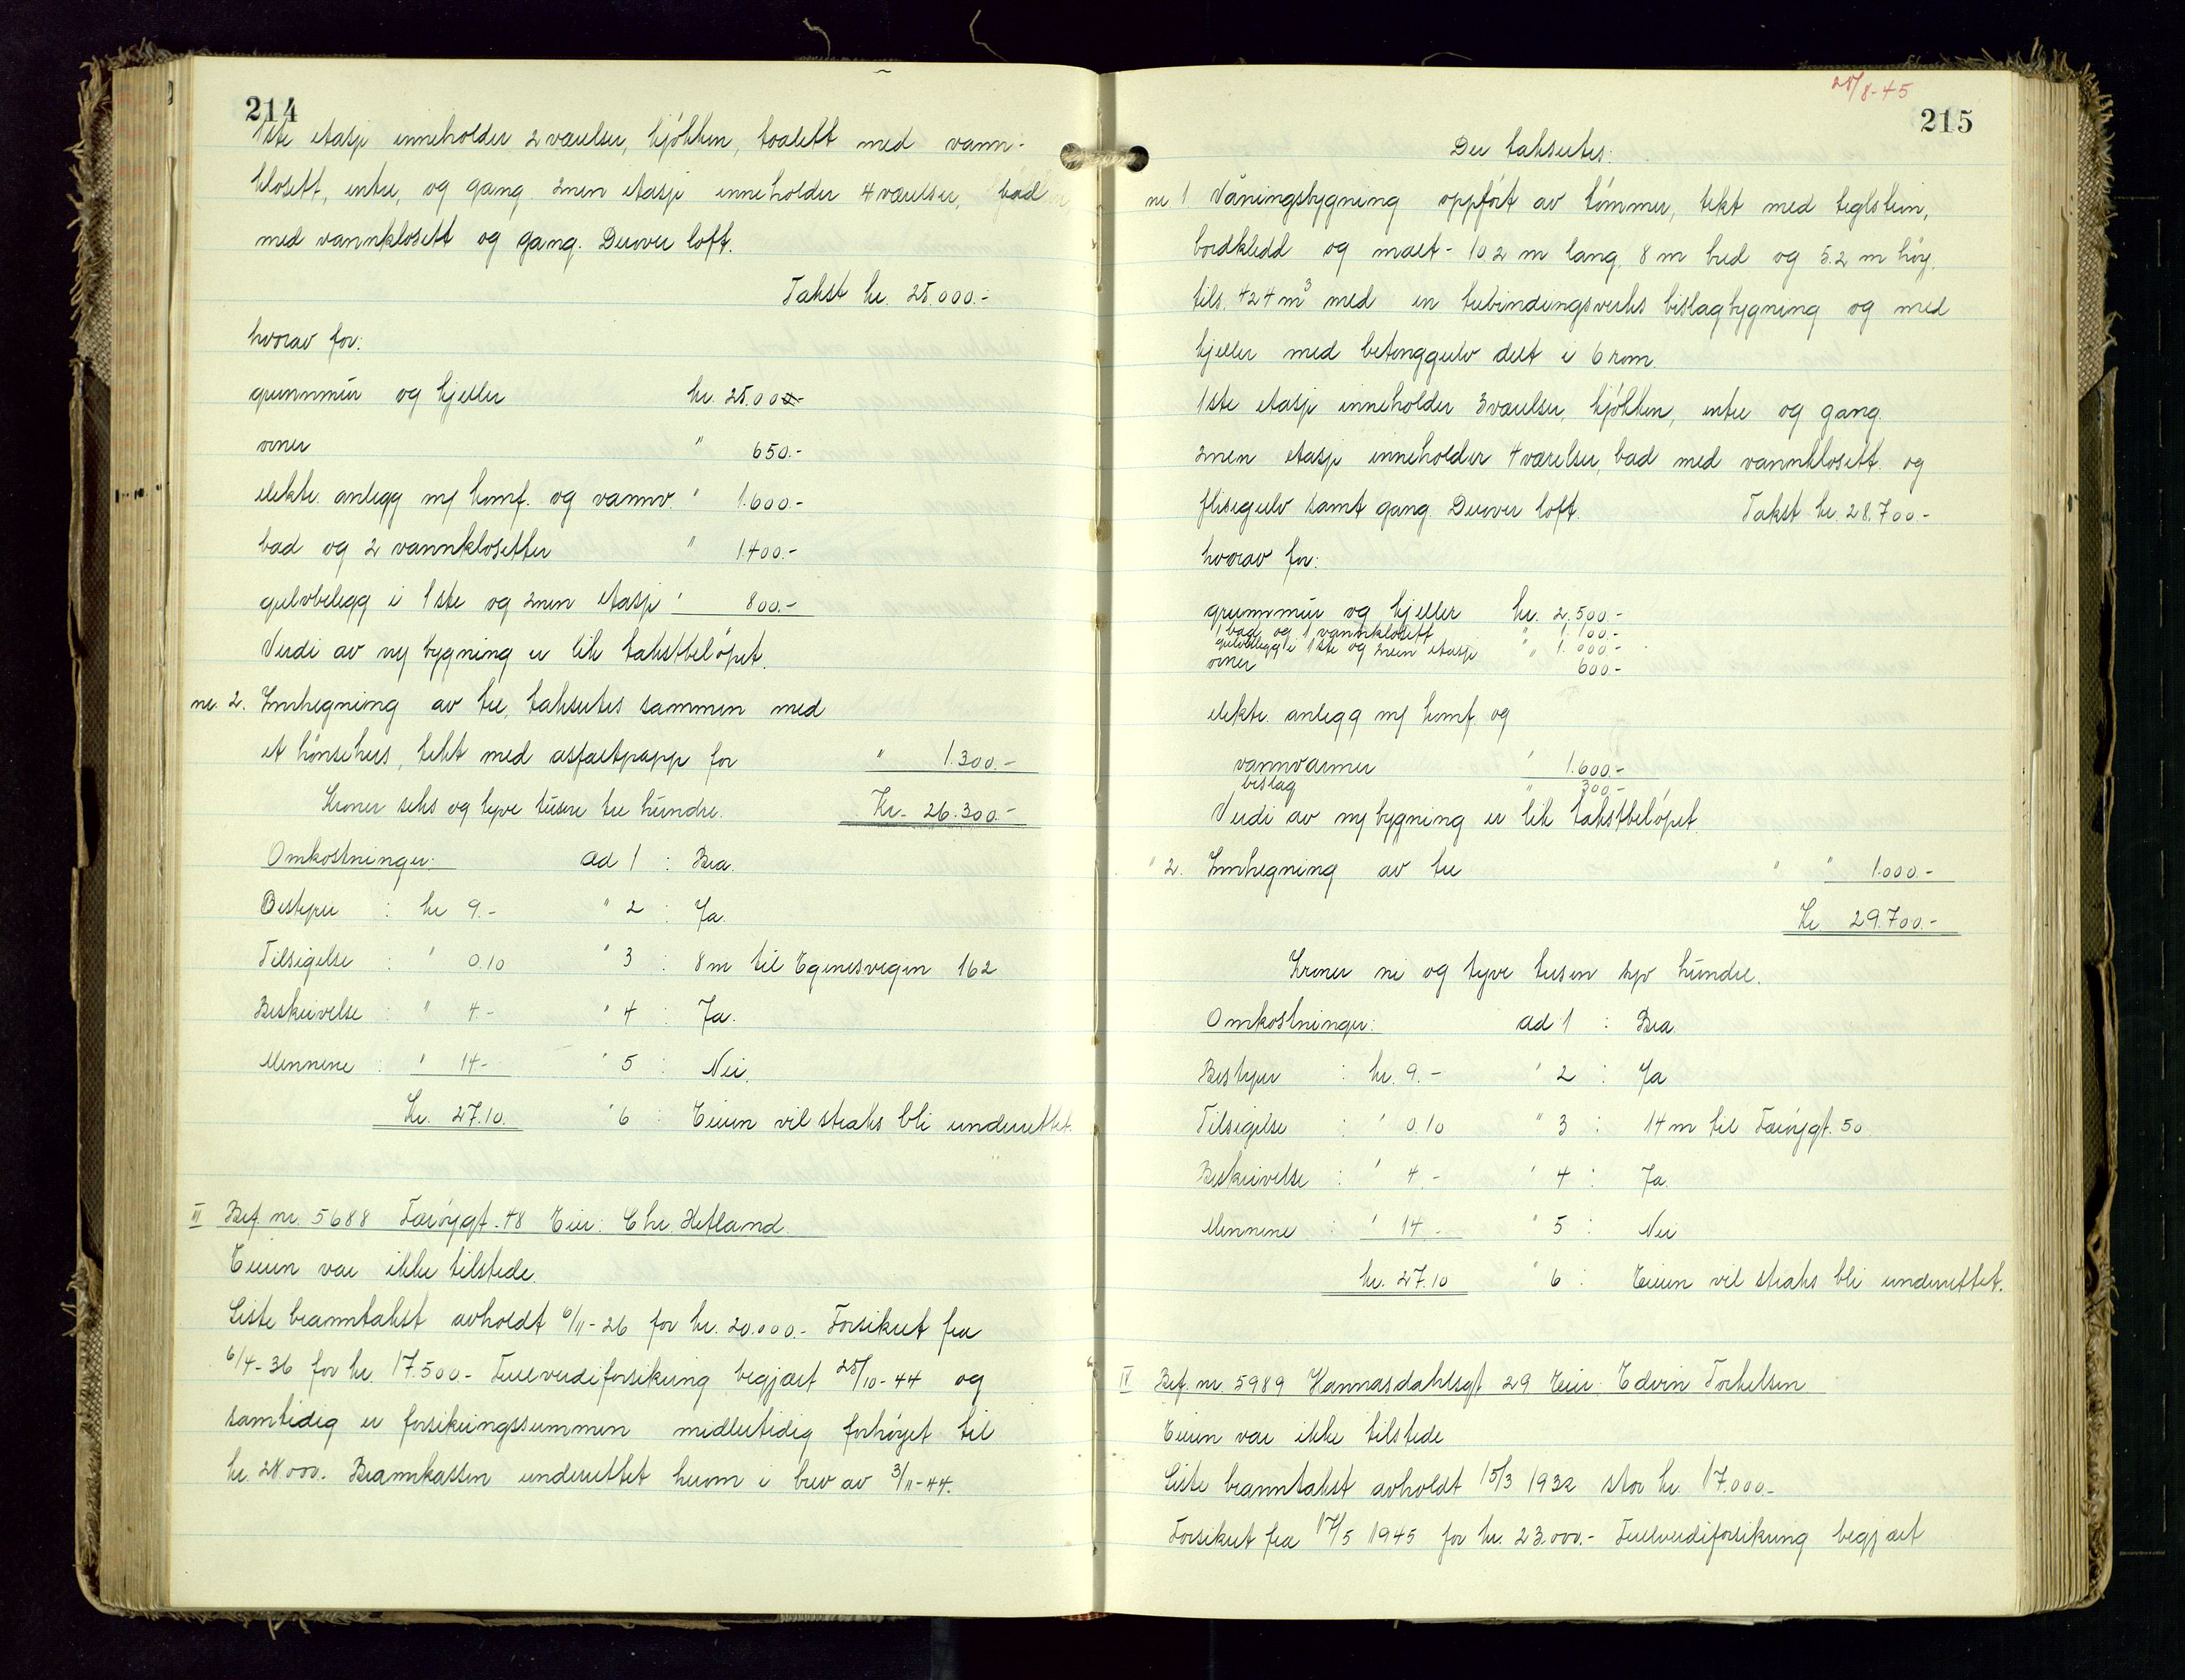 214
1ste etasje inneholder 2 værelser, kjøkken, toalett med vann-
klosett, entre, og gang. 2nen etasje inneholder 4 værelser, bad
med vannklosett og gang. Derover loft.
Takst kr. 25.000.-
hvorav for:
grunnmur og kjeller kr. 25.00
ovner " 650.-
elektr. anlegg m/ komf. og vannv. " 1.600.-
bad og 2 vannklosetter " 1.400.-
gulvbelegg i 1ste og 2nen etasje " 800.-
Verdi av ny bygning er lik takstbeløpet.
nr. 2. Innhegning av tre, takseres sammen med
et hønsehus, tekt med asfaltpapp for " 1.300.-
Kroner seks og tyve tusen tre hundre. Kr. 26.300.-
Omkostninger: ad 1 : Bra.
Bestyrer : kr 9.- " 2 : Ja.
Tilsigelse : " 0.10 " 3 : 8 m til Egenesvegen 162
Beskrivelse : " 4.- " 4 : Ja.
Mennene : " 14- " 5 : Nei.
Kr. 27.10. " 6 : Eieren vil straks bli underrettet.
III Bef. nr. 5688 Færøygt. 48 Eier: Chr. Hetland.
Eieren var ikke tilstede.
Siste branntakst avholdt 6/11-26 for kr. 20.000.- Forsikret fra
6/4-36 for kr. 17.500.- Fullverdiforsikring begjært 25/10-44 og
samtidig er forsikringssummen midlertidig forhøyet til
kr. 28.000.- Brannkassen underrettet herom i brev av 3/11-44.
28/8-45
215
Der takseres:
nr 1 Våningsbygning oppført av tømmer, tekt med teglstein,
bordkledd og malt - 10.2 m lang, 8 m bred og 5.2 m høy.
tils. 424 m³ med en trebindingsverks bislagbygning og med
kjeller med betonggulv delt i 6 rom.
1ste etasje inneholder 3 værelser, kjøkken, entre og gang.
2nen etasje inneholder 4 værelser, bad med vannklosett og
flisegulv samt gang. Derover loft. Takst kr. 28.700.-
hvorav for:
grunnmur og kjeller kr. 2.500.-
1 bad og 1 vannklosett " 1.100.-
gulvbelegg i 1ste og 2nen etasje " 1.000.-
ovner 600-
elektr. anlegg m/ komf. og
vannvarmer " 1.600.-
bislag " 300.-
Verdi av ny bygning er lik takstbeløpet.
" 2. Innhegning av tre " " 1.000.-
Kr. 29.700.-
Kroner ni og tyve tusen syv hundre.
Omkostninger: ad 1 : Bra.
Bestyrer : kr. 9.- " 2 : Ja
Tilsigelse : " 0.10 " 3 : 14 m til Færøygt. 50
Beskrivelse : " 4.- " 4 : Ja.
Mennene : " 14.- " 5 : Nei
kr. 27.10 " 6 : Eieren vil straks bli underrettet.
IV Bef. nr. 5989 Hannasdahlsgt 29 Eier: Edvin Torkelsen
Eieren var ikke tilstede
Siste branntakst avholdt 15/3 1932 stor kr. 17.000.-
Forsikret fra 17/5 1945 for kr. 23.000.- Fullverdiforsikring begjært